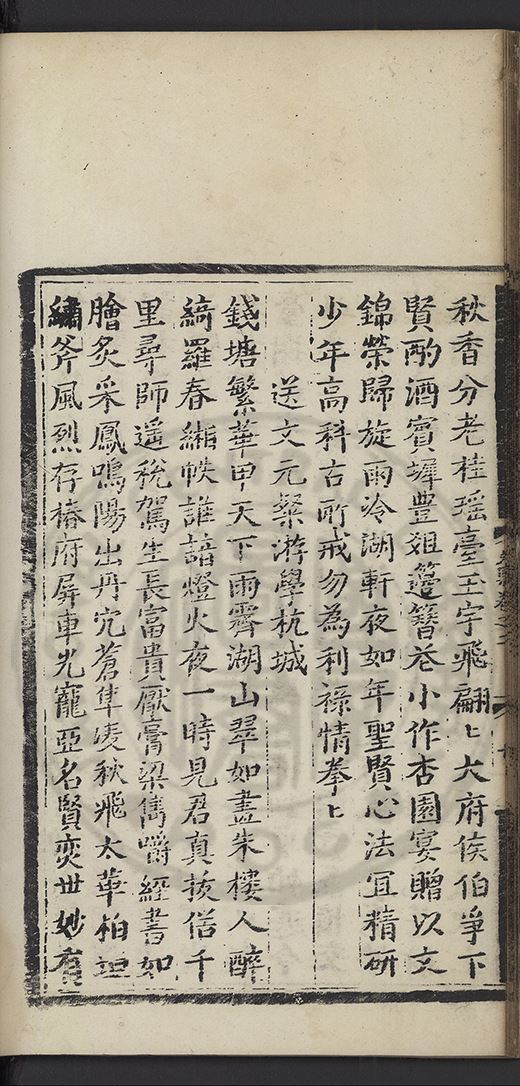 秋香分老桂瑶臺玉宇飛翩〻大府侯伯爭下
賢酌酒賓墀豊俎籩簪花小作杏園宴贈以文
錦榮歸旋雨冷湖軒夜如年聖賢心法宜精研
少年高科古所戒勿為利祿情拳〻
送文元粲游學杭城
錢塘繁華甲天下雨霽湖山翠如畫朱樓人醉
綺羅春緗帙誰諳燈火夜一時見君真拔俗千
里尋師遥稅駕生長富貴厭膏梁雋嚼經書如
膾炙采鳳鳴陽出丹穴蒼隼凌秋飛太華柏䑓
繡斧風烈存椿府屏車光寵亞名賢奕世妙有